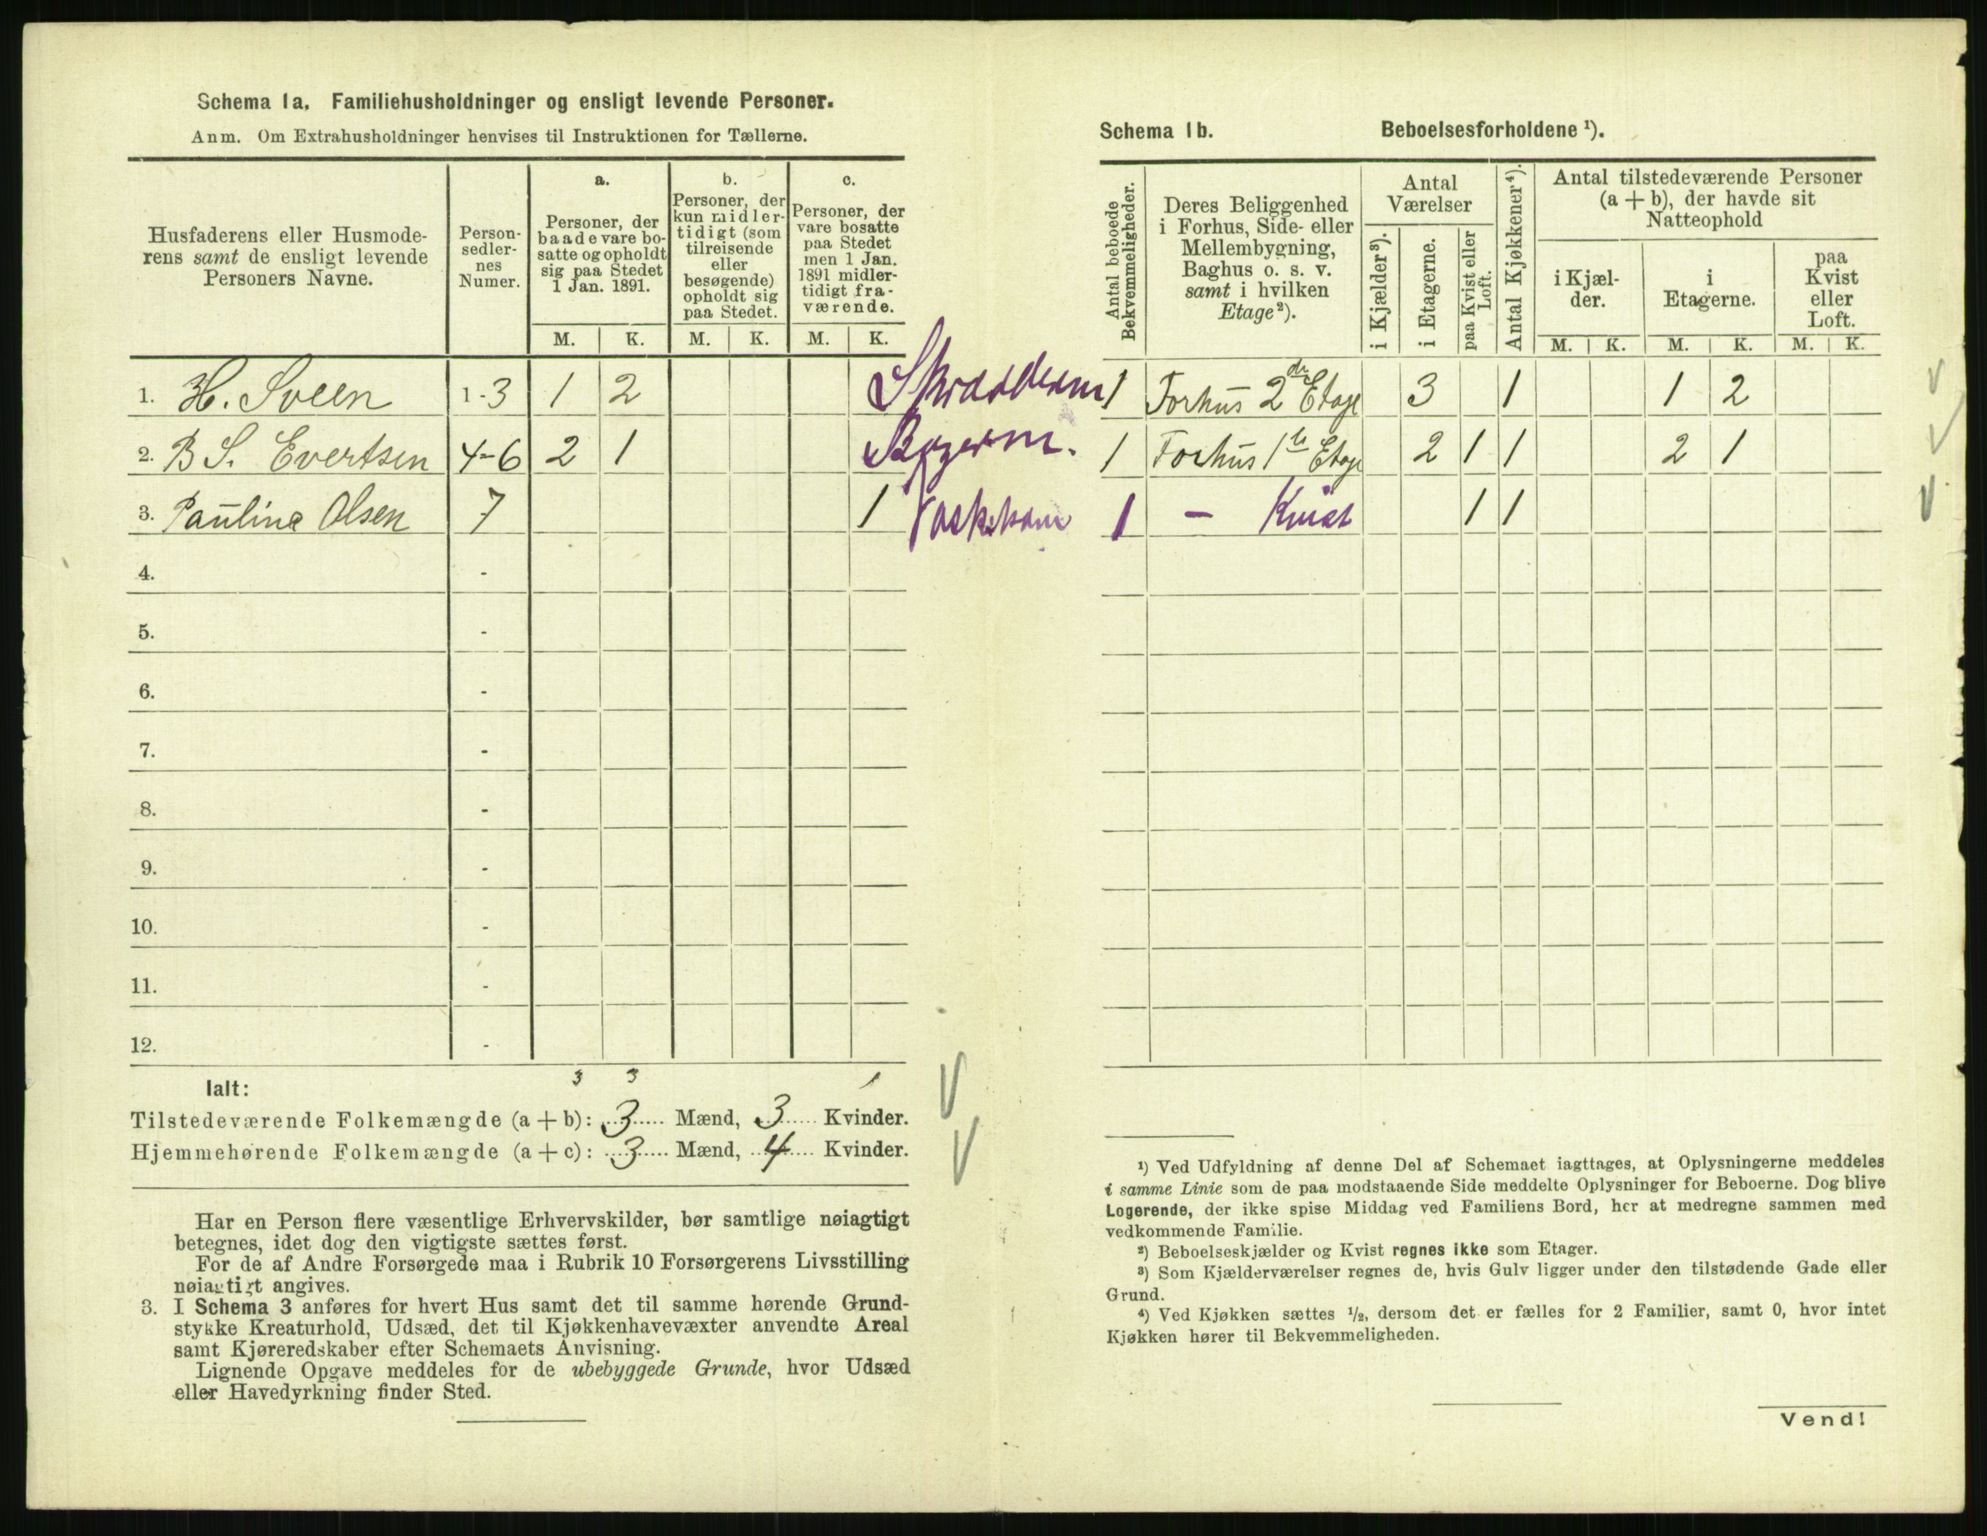 Schema 1a. Familiehusholdninger og ensligt levende Personer.
Anm. Om Extrahusholdninger henvises til Instruktionen for Tællerne.
Husfaderens eller Husmoderens samt de ensligt levende Personers Navne.
Personsedlernes Numer.
a. Personer, der baade vare bosatte og opholdt sig paa Stedet 1 Jan. 1891.
b. Personer, der kun midlertidigt (som tilreisende eller besøgende) opholdt sig paa Stedet.
c. Personer, der vare bosatte paa Stedet men 1 Jan. 1891 midlertidigt fraværende.
M. K. M. K. M. K.
1. H. Sveen 1-3 1 2
2. B S. Evertsen 4-6 2 1
3. Pauline Olsen 7 1 Vaskekone
4. -
5. -
6. -
7. -
8. -
9. -
10. -
11. -
12. -
Ialt: 3 3 1
Tilstedeværende Folkemængde (a + b): 3 Mænd, 3 Kvinder.
Hjemmehørende Folkemængde (a + c): 3 Mænd, 4 Kvinder.
Har en Person flere væsentlige Erhvervskilder, bør samtlige nøiagtigt
betegnes, idet dog den vigtigste sættes først.
For de af Andre Forsørgede maa i Rubrik 10 Forsørgerens Livsstilling
nøiagtigt angives.
3. I Schema 3 anføres for hvert Hus samt det til samme hørende Grund-
stykke Kreaturhold, Udsæd, det til Kjøkkenhavevæxter anvendte Areal
samt Kjøreredskaber efter Schemaets Anvisning.
Lignende Opgave meddeles for de ubebyggede Grunde, hvor Udsæd
eller Havedyrkning finder Sted.
Schema 1b. Beboelsesforholdene ¹).
Antal beboede Bekvemmeligheder.
Deres Beliggenhed i Forhus, Side- eller Mellembygning, Baghus o. s. v. samt i hvilken Etage²).
Antal Værelser
i Kjælder³).
i Etagerne.
paa Kvist eller Loft.
Antal Kjøkkener⁴).
Antal tilstedeværende Personer (a + b), der havde sit Natteophold
i Kjælder.
i Etagerne.
paa Kvist eller Loft.
M. K. M. K. M. K.
1 Forhus 2den Etage 3 1 1 2
1 Forhus 1te Etage 2 1 1 2 1
1 - Kvist 1 1
¹) Ved Udfyldning af denne Del af Schemaet iagttages, at Oplysningerne meddeles
i samme Linie som de paa modstaaende Side meddelte Oplysninger for Beboerne. Dog blive
Logerende, der ikke spise Middag ved Familiens Bord, her at medregne sammen med
vedkommende Familie.
²) Beboelseskjælder og Kvist regnes ikke som Etager.
³) Som Kjælderværelser regnes de, hvis Gulv ligger under den tilstødende Gade eller
Grund.
⁴) Ved Kjøkken sættes ½, dersom det er fælles for 2 Familier, samt 0, hvor intet
Kjøkken hører til Bekvemmeligheden.
Vend!